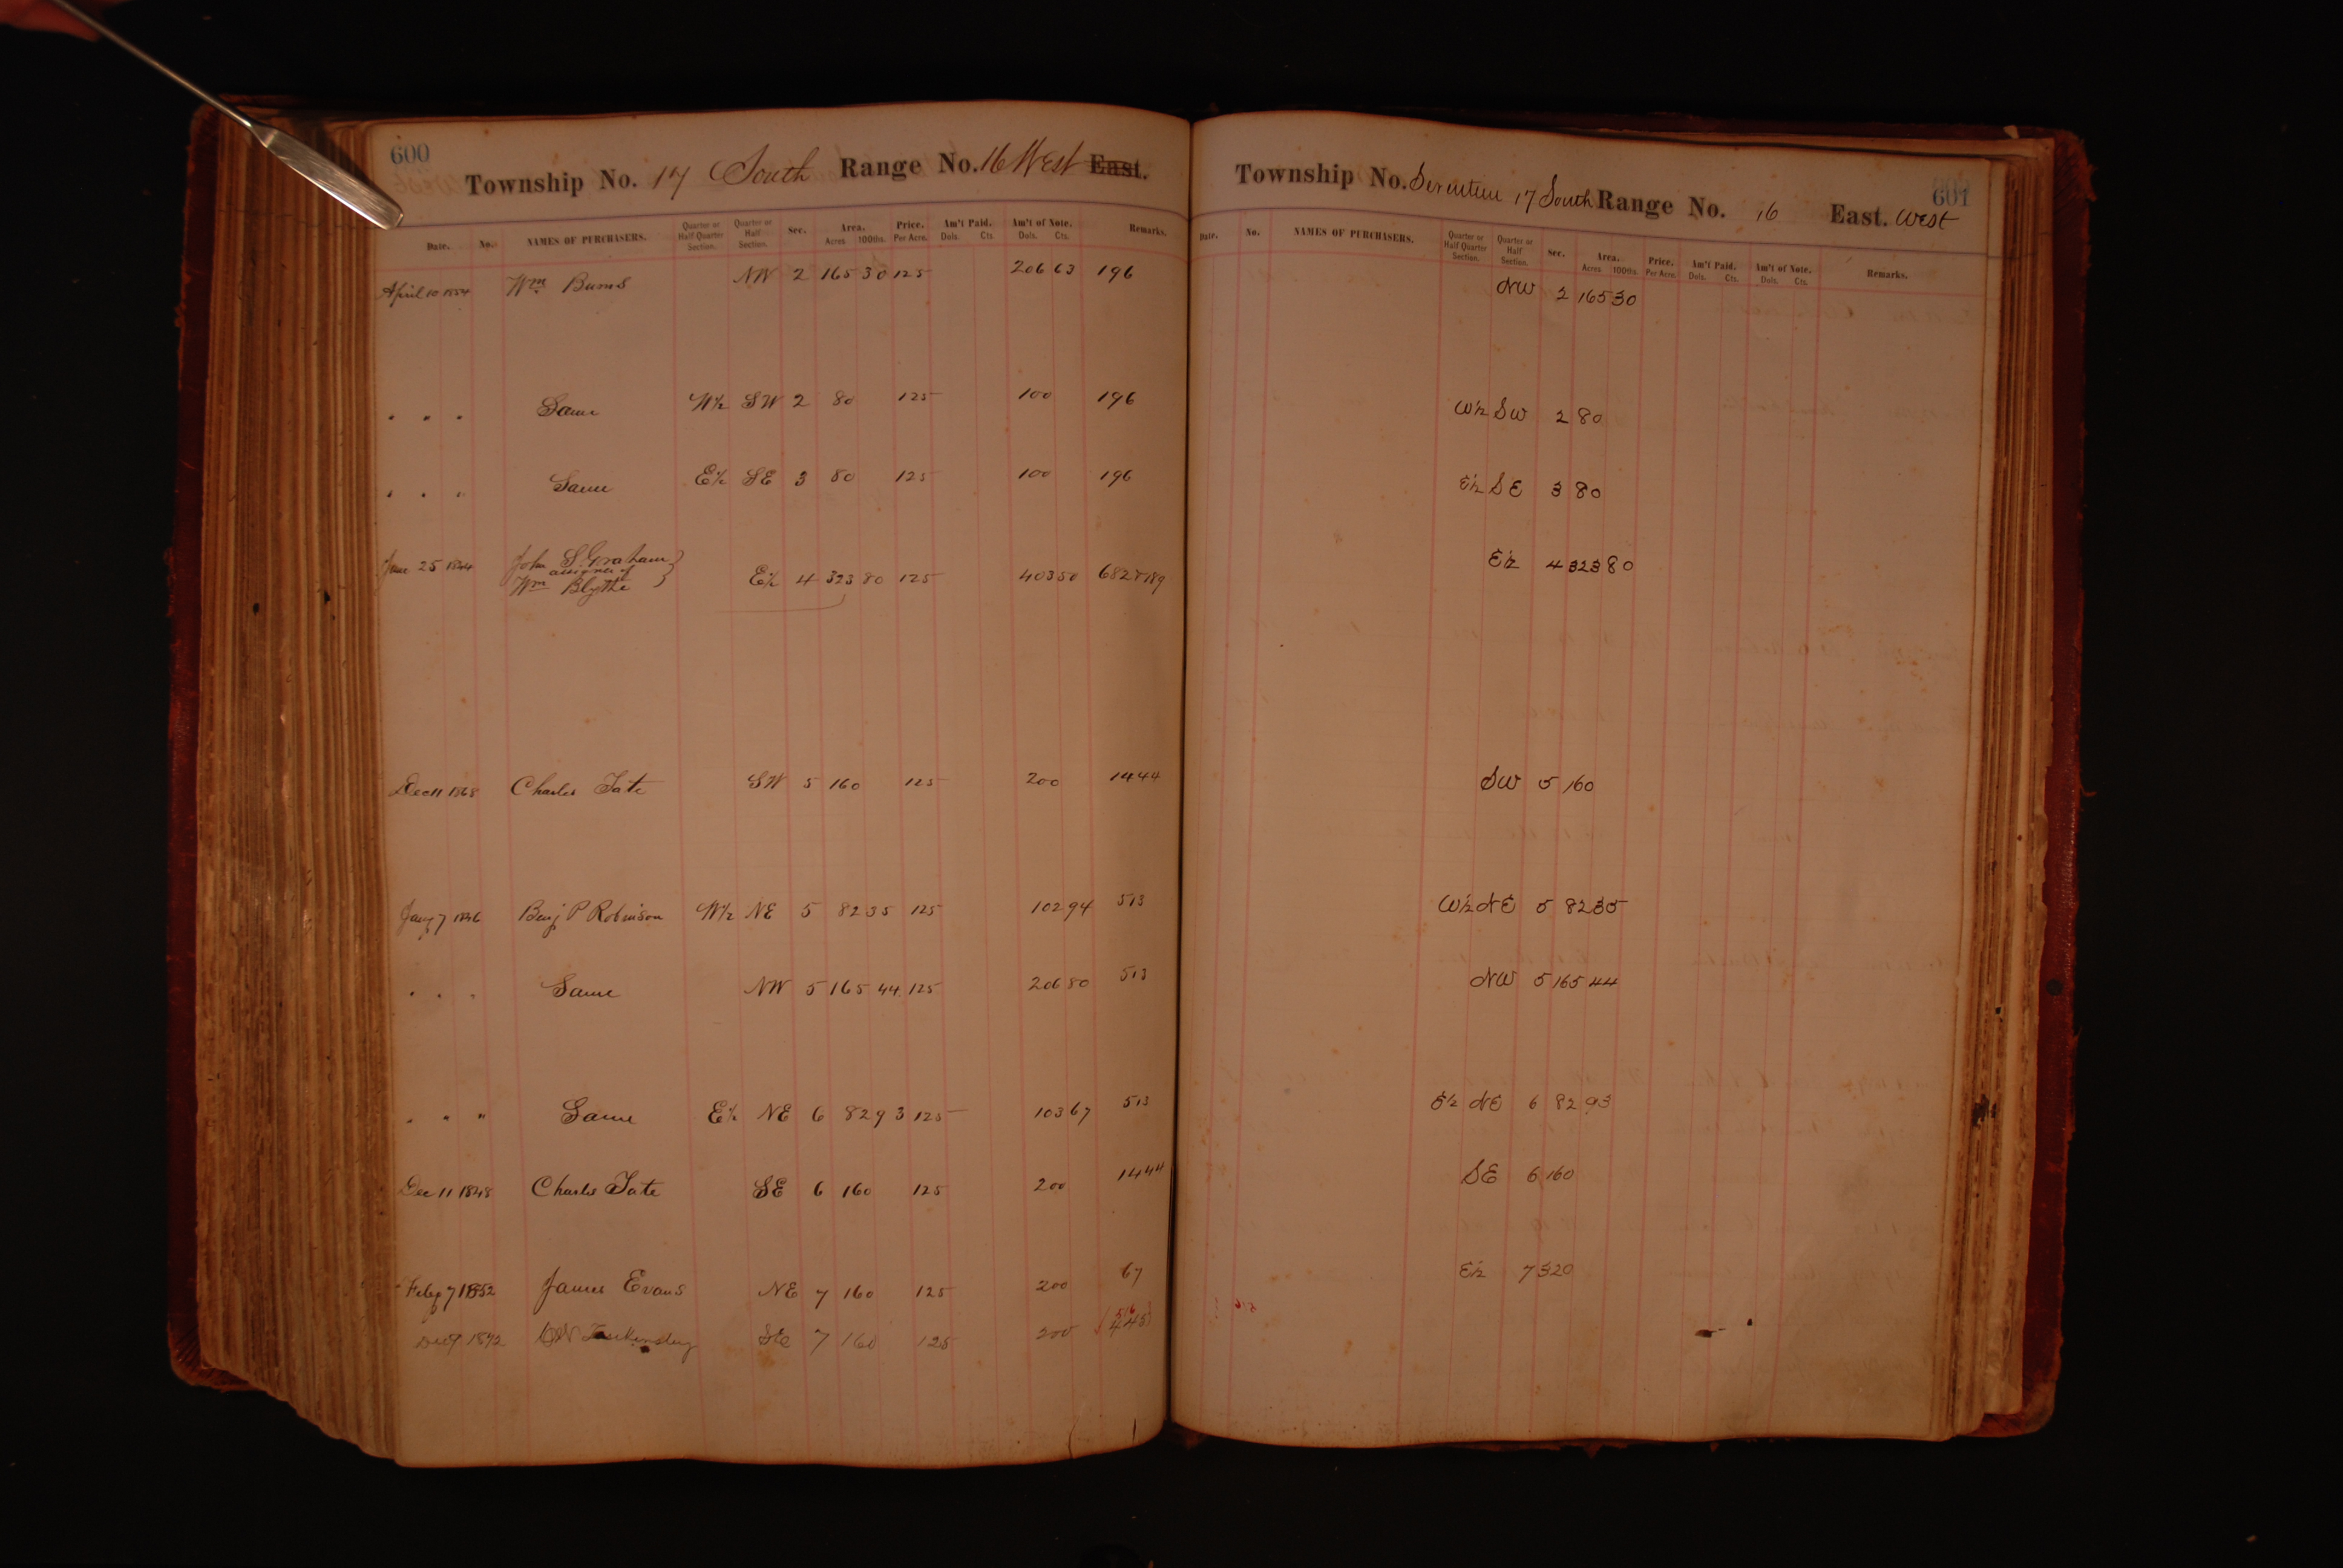 600
Township No. 17 South Range No. 16 West East.
Date. No. NAMES OF PURCHASERS. Quarter or Half Quarter Section. Quarter or Half Section. Sec. Area. Acres 100ths. Price. Per Acre. Am't Paid. Dols. Cts. Am't of Note. Dols. Cts. Remarks.
April 10 1854 Wm Burns NW 2 165 30 125 206 63 196
" " " Same W½ SW 2 80 125 100 196
" " " Same E½ SE 3 80 125 100 196
June 25 John S. Graham
assignee of
Wm Blythe E½ 4 323 80 125 403 50
Dec 11 Charles Tate SW 5 160 125 200 1444
Jany 7 Benj P Robinson W½ NE 5 82 35 125 102 94 513
" " " Same NW 5 165 44 125 206 80 513
" " " Same E½ NE 6 82 93 125 103 67 513
Dec 11 1848 Charles Tate SE 6 160 125 200 1444
Feby 7 1852 James Evans NE 7 160 125 200 67
1872 SE 7 160 125 200
601
Township No. Seventeen 17 South Range No. 16 East. West
Date. No. NAMES OF PURCHASERS. Quarter or Half Quarter Section. Quarter or Half Section. Sec. Area. Acres 100ths. Price. Per Acre. Am't Paid. Dols. Cts. Am't of Note. Dols. Cts. Remarks.
NW 2 165 30
W½ SW 2 80
E½ SE 3 80
E½ 4 323 80
SW 5 160
W½ NE 5 82 35
NW 5 165 44
E½ NE 6 82 93
SE 6 160
E½ 7 320